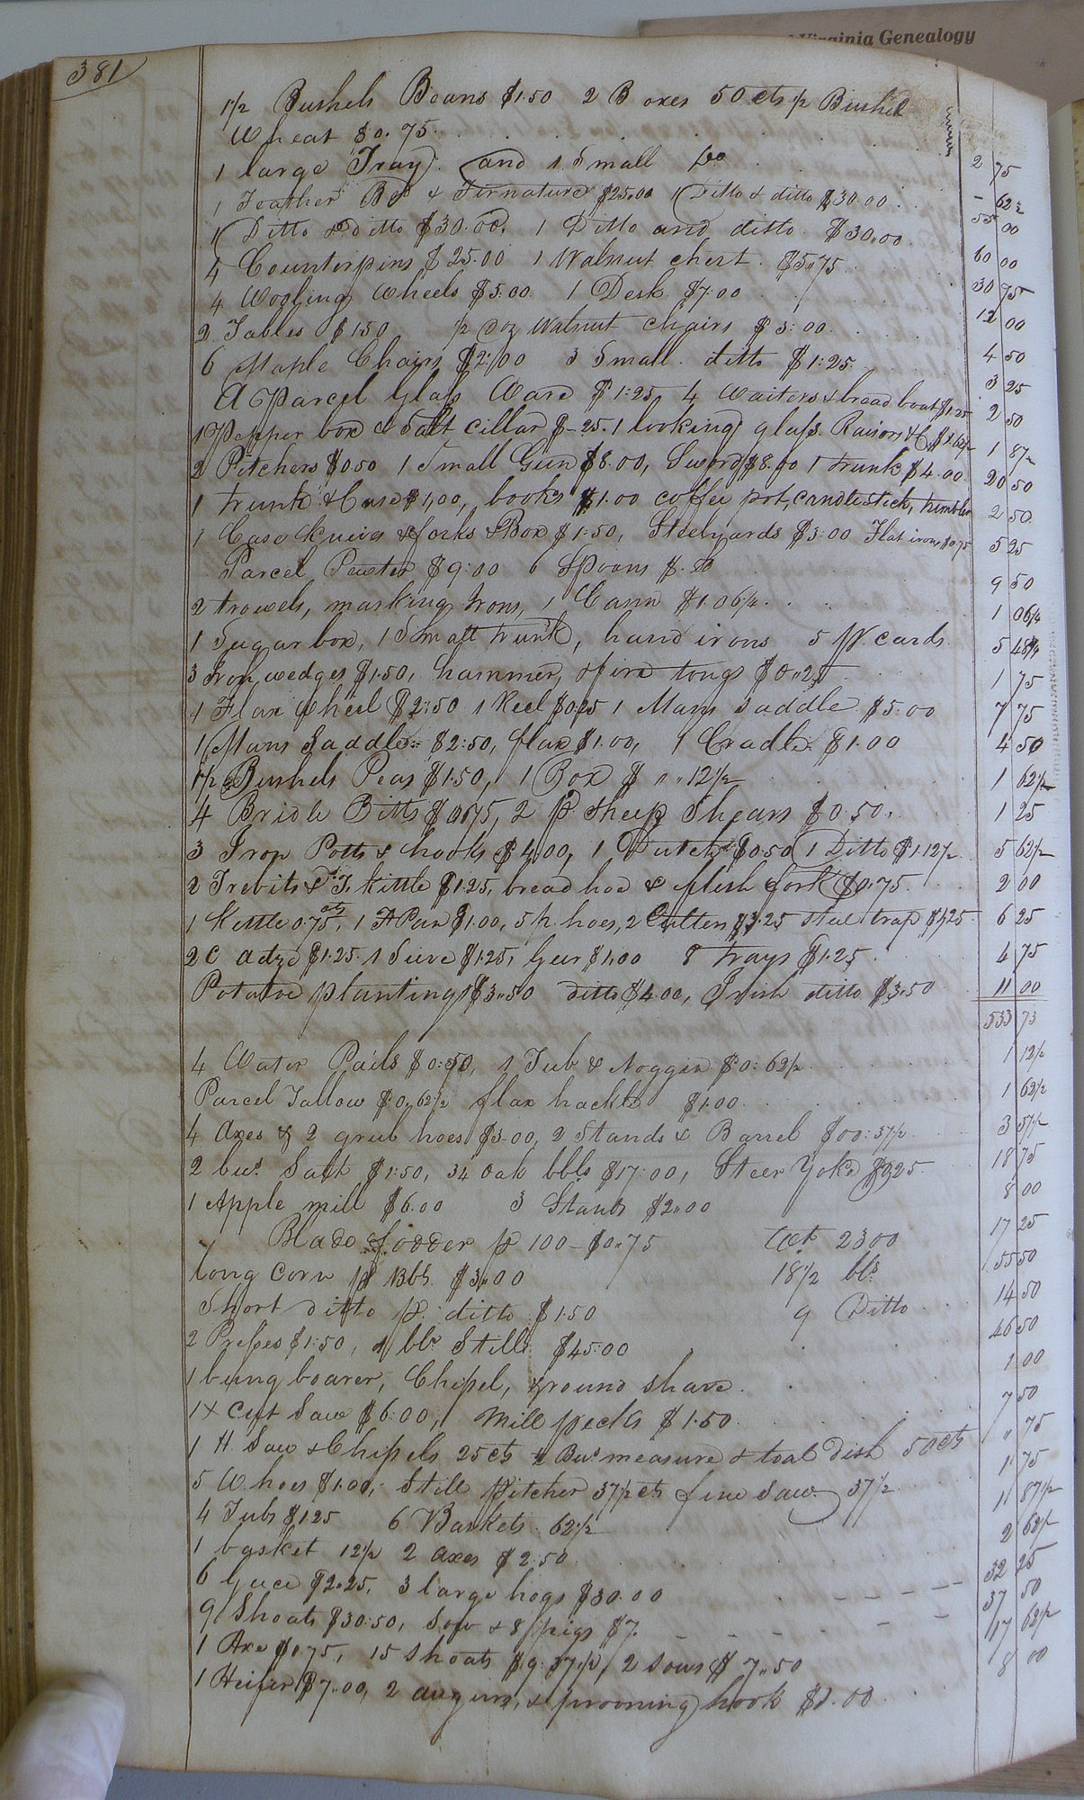 Virginia Genealogy
381
1/2 Bushels Beans $1.50 2 Boxes 50 cts p Bushel
Wheat $0.75. 2 75
1 large Tray and 1 Small Do - 62½
1 Feather Bed & Furnature $25.00 1 Ditto & ditto $30.00 55 00
1 Ditto & Ditto $30.00, 1 Ditto and ditto $30.00 60 00
4 Counterpins $25.00 1 Walnut chest $5.75 30 75
4 Wooling Wheels $5.00 1 Desk $7.00 12 00
2 Tables $1.50 ½ Doz Walnut chairs $3:00 4 50
6 Maple Chairs $2:00 3 Small ditto $1:25 3 25
A Parcel Glass Ware $1:25 4 Waiters & bread boat $1.25 2 50
1 Pepper box & Salt cillar $-25. 1 looking glass Raisors &C $1.62½ 1 87½
2 Pitchers $0.50 1 Small Gun $8.00, Sword $8.00 1 trunk $4.00 20 50
1 trunk & Case $1,00, books $1.00 coffee pot, candlestick, tumbler 2 50
1 Case knives & forks & Box $1:50, Steelyards $3:00 Flat irons $0.75 5 25
Parcel Pewter $9:00 6 Spoons $.50 9 50
2 trowels, marking Irons, 1 Cann $1.06¼ 1 06¼
1 Sugar box, 1 Small trunk, hand irons 5 W. cards 5
3 Iron wedges $1.50, hammer, & fire tongs $0.25 1 75
1 Flax Wheel $2:50 1 Reel $0.25 1 Mans Saddle $5:00 7 75
1 Mans Saddle $2:50, flax $1.00, 1 Cradle $1.00 4 50
1½ Bushels Peas $1.50, 1 Box $ " 12½ 1 62½
4 Bridle Bitts $0.75, 2 p Sheep Shears $0.50. 1 25
3 Iron Potts & hooks $4,00, 1 Dutch $0.50 1 Ditto $1.12½ 5 62½
2 Trebits & T. kittle $1.25, bread hoe & flesh fork $0.75 2 00
1 Kettle 0.75 cts, 1 F Pan $1.00, 5 p. hoes, 2 Cutters $3.25 steel trap $1.25 6 25
2 C adze $1.25. 1 Seive $1.25, Gear $1,00 8 trays $1.25 4 75
Potatoe plantings $3.50 ditto $4.00, Irish ditto $3.50 11 00
533 73
4 Water Pails $0:50, 1 Tub & Noggin $:0:62½ 1 12½
Parcel Tallow $:0,62½ flax hackle $1.00 1 62½
4 Axes & 2 grub hoes $3.00, 2 Stands & Barrel $00:37½ 3 37½
2 bus. Salt $1:50, 34 Oak bbls $17:00, Steer Yoke $0.25 18 75
1 Apple mill $6.00 3 Stands $2.00 8 00
Blade fodder p 100 - $0.75 Wt. 2300 17 25
Long Corn p Bbl. $3.00 18½ bls 55 50
Short ditto p. ditto $1.50 9 Ditto 14 50
2 Presses $1:50, 1 bbr Still $45:00 46 50
1 bung boarer, Chisel, & round shave 1 00
1 X Cut Saw $6:00, Mill pecks $1.50 7 50
1 H. Saw & Chisels 25 cts ½ Bus. measure & toal dish 50 cts " 75
5 W hoes $1.00, Still Pitcher 37½ cts fine Saw 37½ 1 75
4 Tubs $1.25 6 Baskets 62½ 1 87½
1 basket 12½ 2 axes $2.50 2 62½
6 Geece $2.25, 3 large hogs $30.00 32 25
9 Shoats $30:50, Sow & 8 pigs $7. 37 50
1 Axe $0.75, 15 shoats $9.37½, 2 Sows $7.50 17 62½
1 Heifer $7.00, 2 augurs, & prooning hook $1.00 8 00